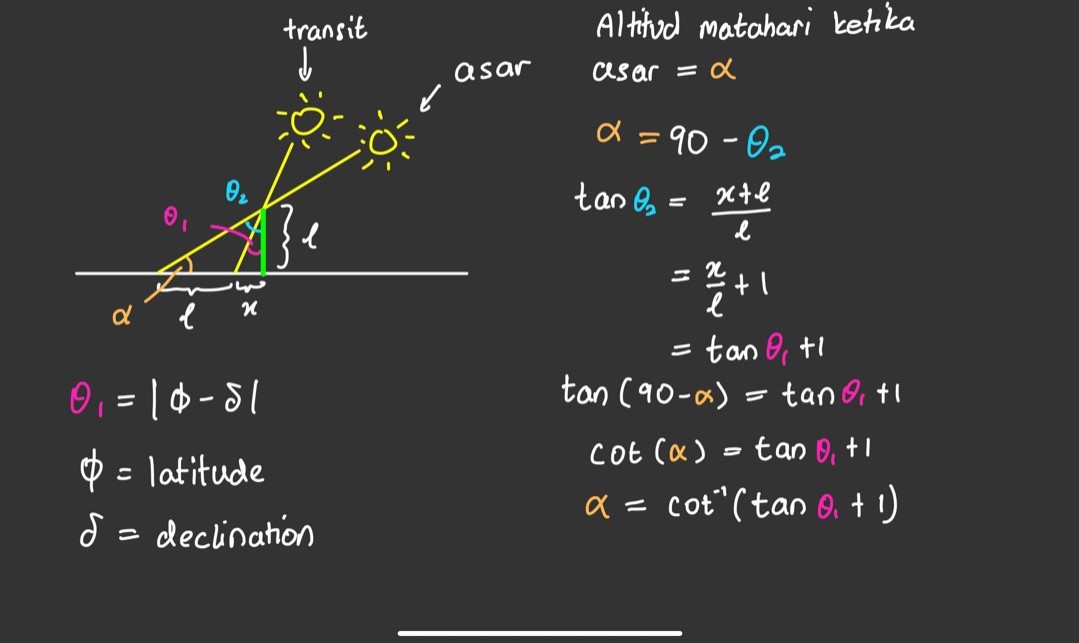 transit
asar
θ₂
θ₁
l
α
l
x
θ₁ = |ϕ - δ|
ϕ = latitude
δ = declination
Altitud matahari ketika
asar = α
α = 90 - θ₂
tan θ₂ = x+l / l
= x/l + 1
= tan θ₁ + 1
tan (90-α) = tan θ₁ + 1
cot (α) = tan θ₁ + 1
α = cot⁻¹(tan θ₁ + 1)